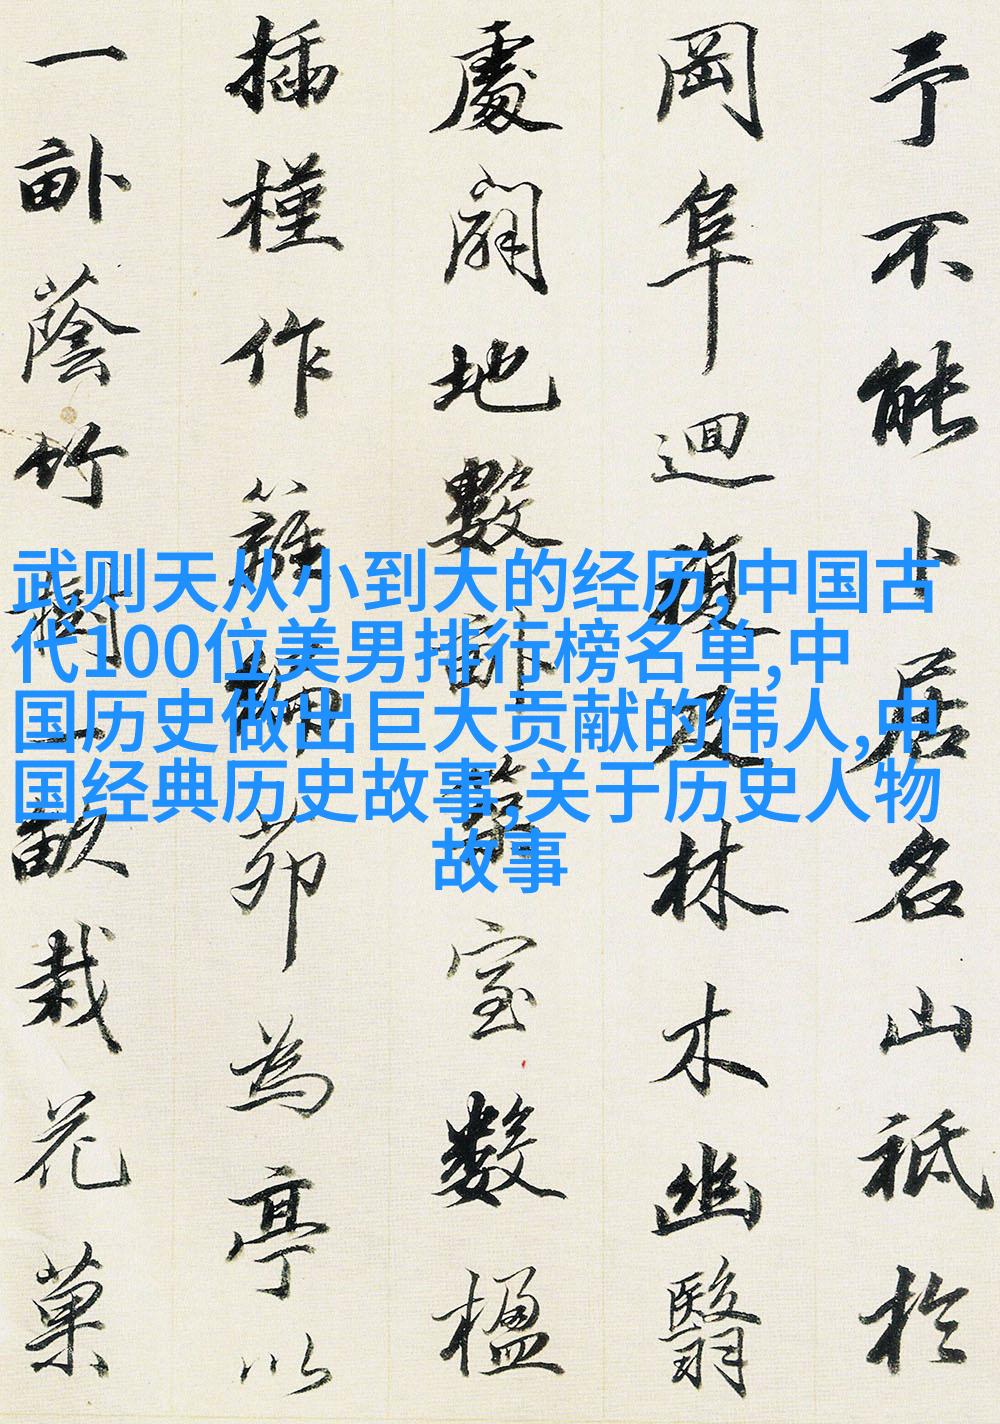 予不能卜居名山祗於
岡阜迴複及林木幽翳
處闢地數畝築室數楹
插槿作籬編茆為亭以
一畝蔭竹樹一畝栽花菓
武则天从小到大的经历,中国古
代100位美男排行榜名单,中
国历史做出巨大贡献的伟人,中
国经典历史故事,关于历史人物
故事